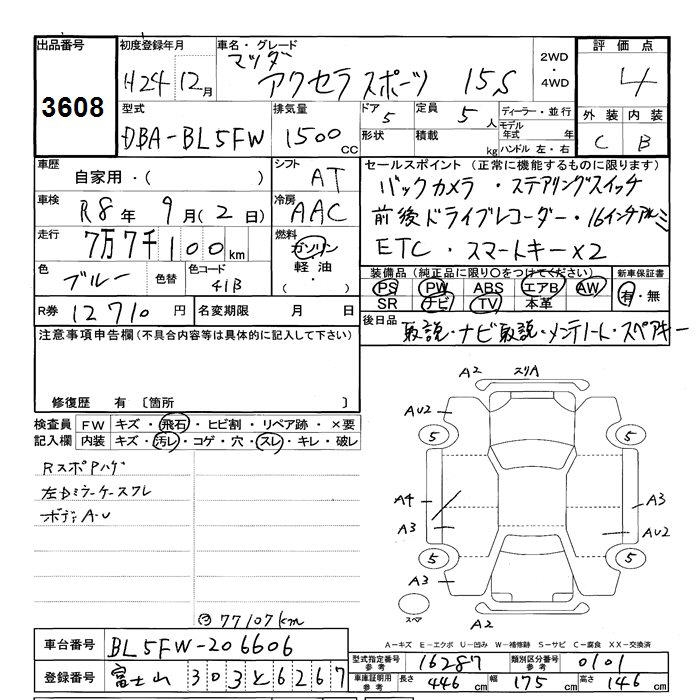 出品番号 初度登録年月 車名・グレード 評価点
3608
H24 12月 マツダ
アクセラ スポーツ 15S
2WD・4WD
4
型式 排気量 ドア 5 定員 5人 ディーラー・並行 外装 内装
DBA-BL5FW 1500cc 形状 積載 kg モデル年式 年 ハンドル 左・右 C B
車歴 自家用・( )
シフト AT
車検 R8年 9月(2日)
冷房 AAC
走行 7万7千100km
燃料 ガソリン 軽油・ ( )
色 ブルー 色替 色コード 41B
R券 12710円 名変期限 月 日
セールスポイント(正常に機能するものに限ります)
バックカメラ・ステアリングスイッチ
前後ドライブレコーダー・16インチアルミ
ETC・スマートキー×2
装備品(純正品に限り○をつけてください) 新車保証書
PS PW ABS エアB AW 有・無
SR ナビ TV 本革
後日品 取説・ナビ取説・メンテノート・スペアキー
注意事項申告欄(不具合内容等は具体的に記入して下さい)
修復歴 有〔箇所 〕
検査員記入欄 FW キズ・飛石・ヒビ割・リペア跡・×要
内装 キズ・汚レ・コゲ・穴・スレ・キレ・破レ
RスポPハゲ
左Dミラーケースワレ
ボディA・U
走77107km
A2 スリA
AU2
5 5
A4 A3
A3 AU2
5 5
A3
スペア A2
A-キズ E-エクボ U-凹み W-補修跡 S-サビ C-腐食 XX-交換済
車台番号 BL5FW-206606
登録番号 富士山 303 と 6267
型式指定番号参考 16287 類別区分番号参考 0101
車庫証明用参考 長さ 446cm 幅 175cm 高さ 146cm